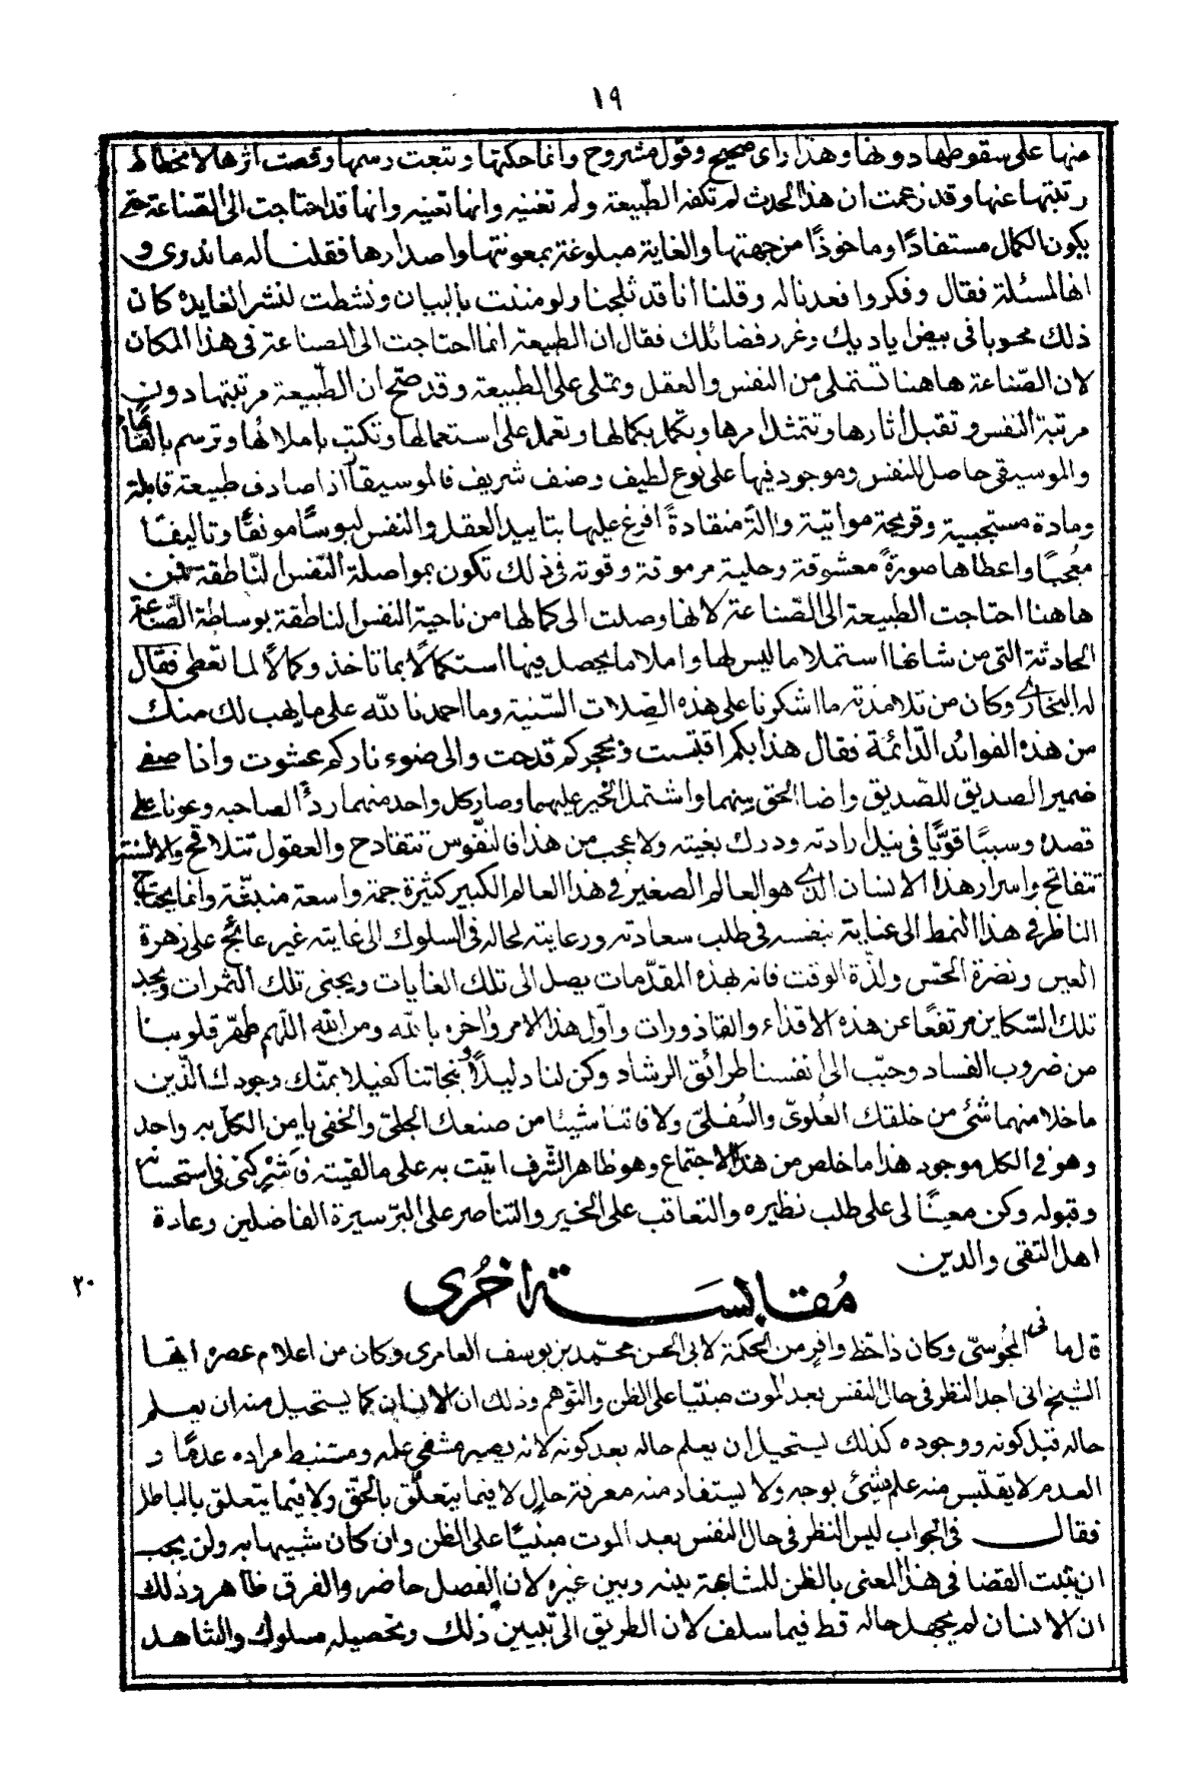 ١٩
منها على سقوطها دونها وهذا راى صحيح وقول مشروح وانما حكتها وتتبعت رسمها وقصت اثرها لانحطاط
رتبتها عنها وقد زعمت ان هذا الحدث لم تكفه الطّبيعة ولم تغنيه وانها تعينه وانها قد احتاجت الى الصّناعة حتى
يكون الكمال مستفادًا وماخوذًا من جهتها والغاية مبلوغة بمعونتها واصدارها فقلنا له ماندرى و
انها لمسئلة فقال وفكروا فعدنا له وقلنا انا قد ثلجنا ولو مننت بالبيان ونشطت لنشر الفايدة كان
ذلك محسوبا فى بيض اياديك وغرر فضائلك فقال ان الطبيعة انما احتاجت الى الصناعة فى هذا المكان
لان الصّناعة هاهنا تستملى من النفس والعقل وتملى على الطبيعة وقد صحّ ان الطّبيعة مرتبتها دون
مرتبة النفس وتقبل اثارها وتتمثل امرها وتكمل بكمالها وتعمل على استعمالها وتكتب باملائها وترسم بالقائها
والموسيقى حاصل للنفس وموجود فيها على نوع لطيف وصنف شريف فالموسيقار اذا صادف طبيعة قابلة
ومادة مستجيبة وقريحة مواتية وآلة منقادةً افرغ عليها بتاييد العقل والنفس لبوسًا مونقًا وتاليفًا
معجبًا واعطاها صورةً معشوقة وحلية مرموقة وقوته فى ذلك تكون بمواصلة النّفس النّاطقة فمن
هاهنا احتاجت الطبيعة الى الصّناعة لانها وصلت الى كمالها من ناحية النفس الناطقة بوساطة الصّناعة
الحادثة التى من شانها استملا ما ليس لها واملا ما يحصل فيها استكمالًا بما تاخذ وكمالًا لما تعطى فقال
له البخارى وكان من تلامذته ما اشكرنا على هذه الصّلات السّنية وما احمدنا لله على ما يهب لك منك
من هذه الفوائد الدّائمة فقال هذا بكم اقتبست وبحجركم قدحت والى ضوء ناركم عشوت واذا صفى
ضمير الصديق للصّديق واضا الحق بينهما واشتمل الخير عليهما وصار كل واحد منهما ردءًا لصاحبه وعونا على
قصده وسببًا قويًّا فى نيل ارادته ودرك بغيته ولا عجب من هذا فالنّفوس تتقادح والعقول تتلاقح والالسنة
تتفاتح واسرار هذا الانسان الذى هو العالم الصغير فى هذا العالم الكبير كثيرة جمة واسعة منبثّة وانما يحتاج
الناظر فى هذا النمط الى عناية بنفسه فى طلب سعادته ورعايته لحاله فى السلوك الى غايته غير عائج على زهرة
العين ونضرة الحسّ ولذّة الوقت فانه بهذه المقدّمات يصل الى تلك الغايات ويجنى تلك الثمرات ويجد
تلك السّكاين مرتفعًا عن هذه الاقذاء والقاذورات واوّل هذا الامر واخره بالله ومن الله اللّهم طهّر قلوبنا
من ضروب الفساد وحبّب الى انفسنا طرائق الرشاد وكن لنا دليلًا وبنجاتنا كفيلا بمنّك وجودك الذّين
ما خلا منهما شئ من خلقك العُلوىّ والسُفلىّ ولا فاتنا شيئا من صنعك الجلىّ والخفى يا من الكل به واحد
وهو فى الكل موجود هذا ما خلص من هذا الاجتماع وهو ظاهر الشّرف اتيت به على ما لقيته فاشركنى فى استحسانه
وقبوله وكن معينًا لى على طلب نظيره والتعاقب على الخير والتناصر على البرّ سيرة الفاضلين وعادة
اهل التقى والدين
مُقابسة اخرى
٢٠
قال مانى المجُوسىّ وكان ذا حظ وافرٍ من الحكمة لابى الحسن محمّد بن يوسف العامرى وكان من اعلام عصره ايّها
الشيخ انى اجد النظر فى حال النفس بعد الموت مبنيّا على الظن والتّوهم وذلك ان الانسان كما يستحيل منه ان يعلم
حاله قبل كونه ووجوده كذلك يستحيل ان يعلم حاله بعد كونه لانه يصير مشفى علمه ومستنبط مراده عدمًا و
العدم لا يقتبس منه علم شئ بوجه ولا يستفاد منه معرفة حالٍ لا فيما يتعلّق بالحقّ ولا فيما يتعلق بالباطل
فقال فى الجواب ليس النظر فى حال النفس بعد الموت مبنيًا على الظن وان كان شبيها به ولن يجب
ان يثبت القضا فى هذا المعنى بالظن للمشابهة بينه وبين غيره لان الفصل حاضر والفرق ظاهر وذلك
ان الانسان لم يجهل حاله قط فيما سلف لان الطريق الى تبيين ذلك وتحصيله مسلوك والشاهد